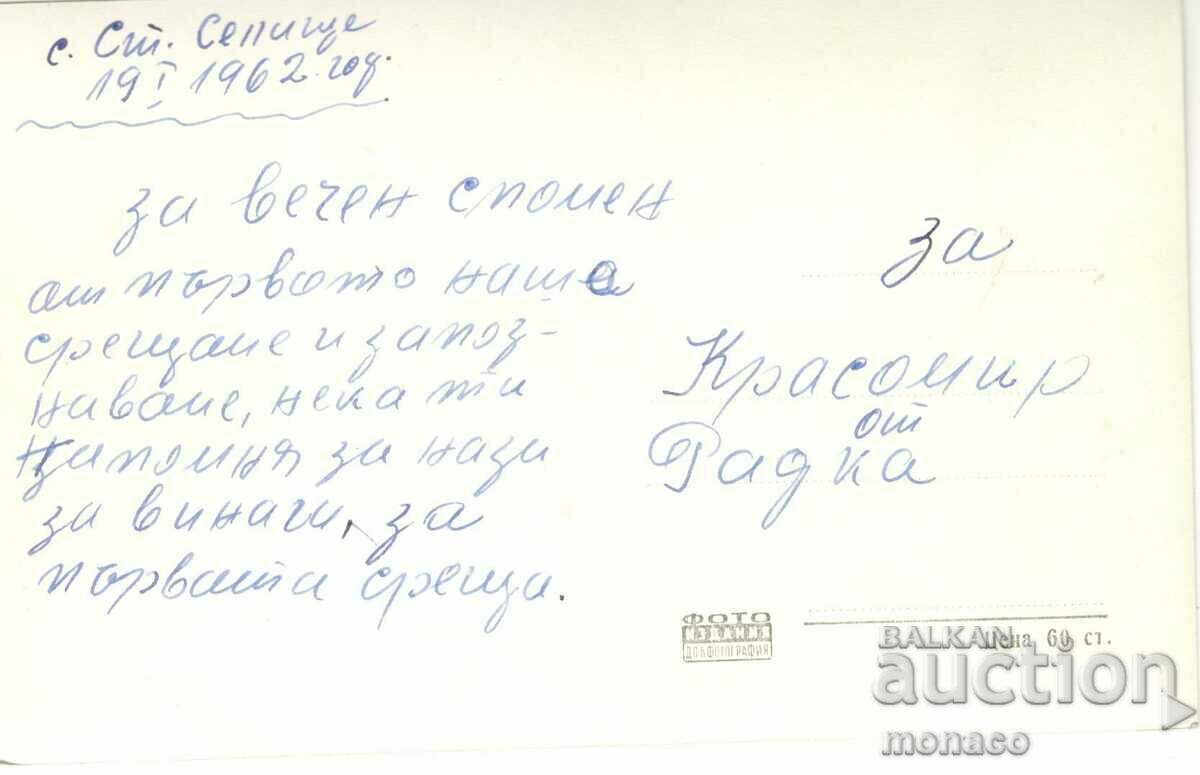 с. Ст. Селище
19 I 1962 год.
за вечен спомен
от първото наше
срещане и запоз-
наване, нека ти
напомня за нази
за винаги, за
първата среща.
за
Красомир
от
Радка
ФОТО
ИЗДАНИЕ
ДПК ФОТОГРАФИЯ
Цена 60 ст.
BALKAN
auction
monaco